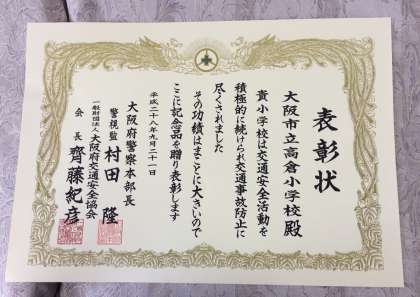 表彰状
大阪市立高倉小学校殿
貴小学校は交通安全活動を
積極的に続けられ交通事故防止に
尽くされました
その功績はまことに大きいので
ここに記念品を贈り表彰します
平成二十八年九月二十一日
大阪府警察本部長
警視監 村田 隆
一般財団法人大阪府交通安全協会
会長 齊藤紀彦